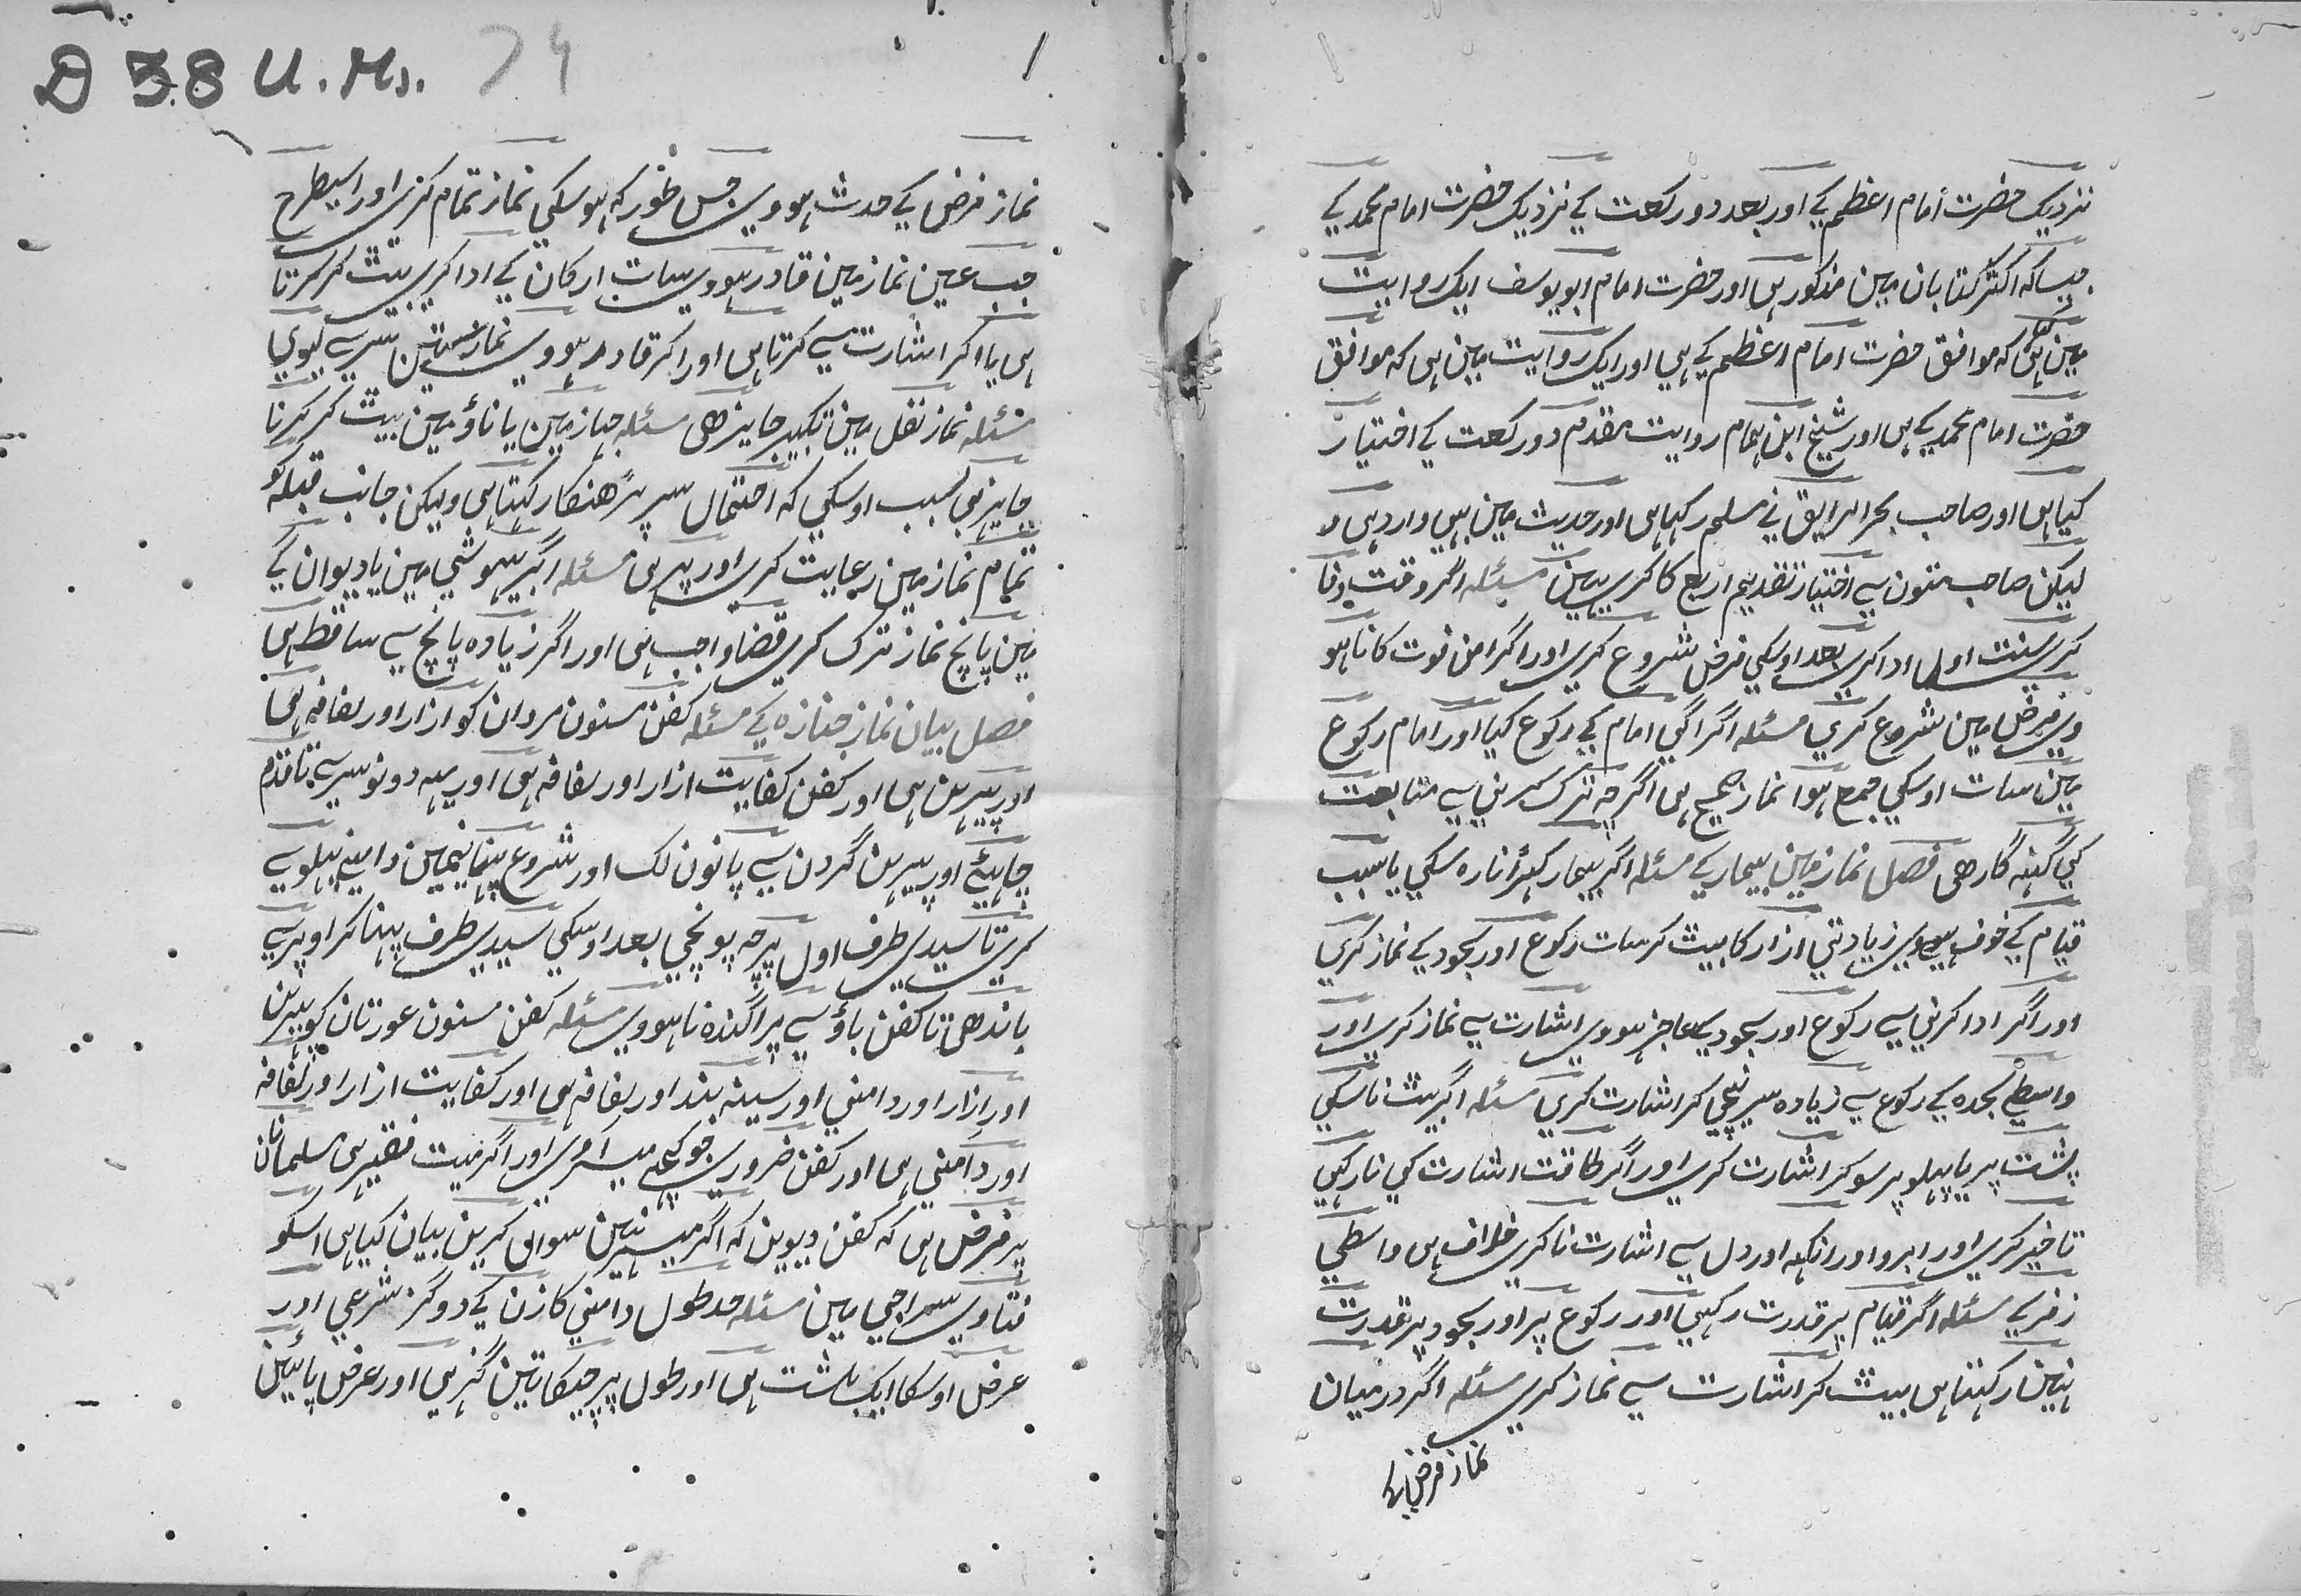 نزدیک حضرت امام اعظم کے اور بعد دو رکعت کے نزدیک حضرت امام محمد کے
جیسا کہ اکثر کتابان مین مذکور ہی اور حضرت امام ابو یوسف ایک روایت
مین ہی کہ موافق حضرت امام اعظم کے ہی اور ایک روایت مین ہی کہ موافق
حضرت امام محمد کے ہی اور شیخ ابن ہمام روایت مقدم دو رکعت کے اختیار
کیا ہی اور صاحب بحر الرایق نے مسلم رکہا ہی اور حدیث مین بہی وارد ہی و
لیکن صاحب متون نے اختیار تقدیم اربع کا کری ہین مسئلہ اگر وقت وفا
کری سنت اول ادا کری بعد اوسکی فرض شروع کری اور اگر امن فوت کا نا ہو
وی فرض مین شروع کری مسئلہ اگر اگی امام کے رکوع کیا اور امام رکوع
مین سات اوسکی جمع ہوا نماز صحیح ہی اگرچہ ترک کرنی سے متابعت
کی گنہ گار ہی فصل نماز مین بیمار کے مسئلہ اگر بیمار کہڑا نا رہ سکی یا سبب
قیام کے خوف ہووی زیادتی ازار کا بیٹ کر سات رکوع اور سجود کے نماز کری
اور اگر ادا کرنی سے رکوع اور سجود کے عاجز ہووی اشارت سے نماز کری اور
واسطے سجدہ کے رکوع سے زیادہ سر نیچی کر اشارت کری مسئلہ اگر بیٹ نا سکی
پشت پر یا پہلو پر سو کر اشارت کری اور اگر طاقت اشارت کی نا رکہی
تاخیر کری اور ابرو اور انکہہ اور دل سے اشارت نا کری خلاف ہی واسطی
زفر کے مسئلہ اگر قیام پر قدرت رکہی اور رکوع پر اور سجود پر قدرت
نہین رکہتا ہی بیٹ کر اشارت سے نماز کری مسئلہ اگر درمیان
نماز فرض
D 38 U. Ms. 74
1
نماز فرض کے حدث ہووی جس طور کہ ہو سکی نماز تمام کری اور اسیطرح
جب عین نماز مین قادر ہووی سات ارکان کے ادا کری بیٹ کر کرتا
ہی یا اگر اشارت سے کرتا ہی اور اگر قادر ہووی نماز سر سے لیوی
مسئلہ نماز نفل مین تکبیر جایز ہی مسئلہ جہاز مین یا ناؤ مین بیٹ کر کرنا
جایز ہی بسبب اوسکی کہ احتمال سر پڑھنکا رکہتا ہی ولیکن جانب قبلہ کو
تمام نماز مین رعایت کری اور پہرے مسئلہ اگر بیہوشی مین یا دیوان کے
مین پانچ نماز ترک کری قضا واجب ہی اور اگر زیادہ پانچ سے ساقط ہی
فصل بیان نماز جنازہ کے مسئلہ کفن مسنون مردان کو ازار اور لفافہ ہی
اور پیرہن ہی اور کفن کفایت ازار اور لفافہ ہی اور یہہ دونو سر سے تا قدم
چاہئے اور پیرہن گردن سے پانون لک اور شروع پنہانیمین داہنے پہلو سے
کری تا سیدی طرف اول پرچہ پونچی بعد اوسکی سیدی طرف پہنا کر اوپر سے
باندھی تا کفن باؤ سے پراگندہ نا ہووی مسئلہ کفن مسنون عورتان کو پیرہن
اور ازار اور دامنی اور سینہ بند اور لفافہ ہی اور کفایت ازار اور لفافہ
اور دامنی ہی اور کفن ضروری جو کچہہ میسر آوی اور اگر میت فقیر ہی مسلمانان
پر فرض ہی کہ کفن دیوین کہ اگر میسر نہین سوال کرین بیان کیا ہی اسکو
فتاوی سراجی مین مسئلہ حد طول دامنی کا زن کے دو گز شرعی اور
عرض اوسکا ایک بلشت ہی اور طول پرچیکا تین گز ہی اور عرض پائین